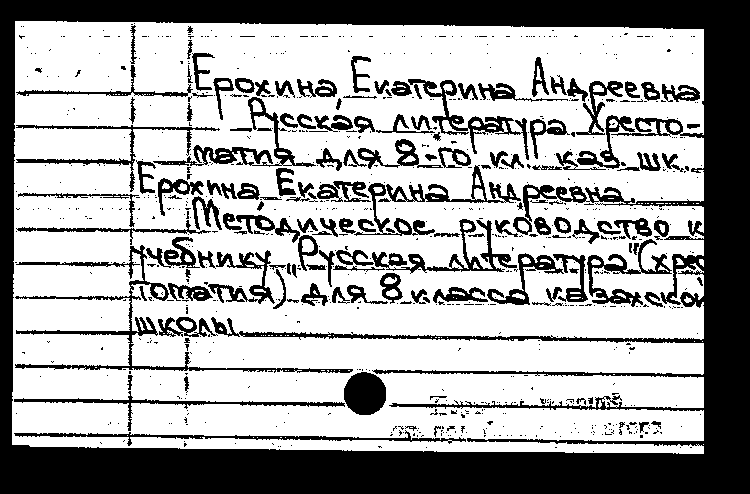 Ерохина, Екатерина Андреевна.
Русская литература. Хресто-
матия для 8-го кл. каз. шк.
Ерохина, Екатерина Андреевна.
Методическое руководство к
учебнику "Русская литература" (хрес
томатия)" для 8 класса казахской
школы.